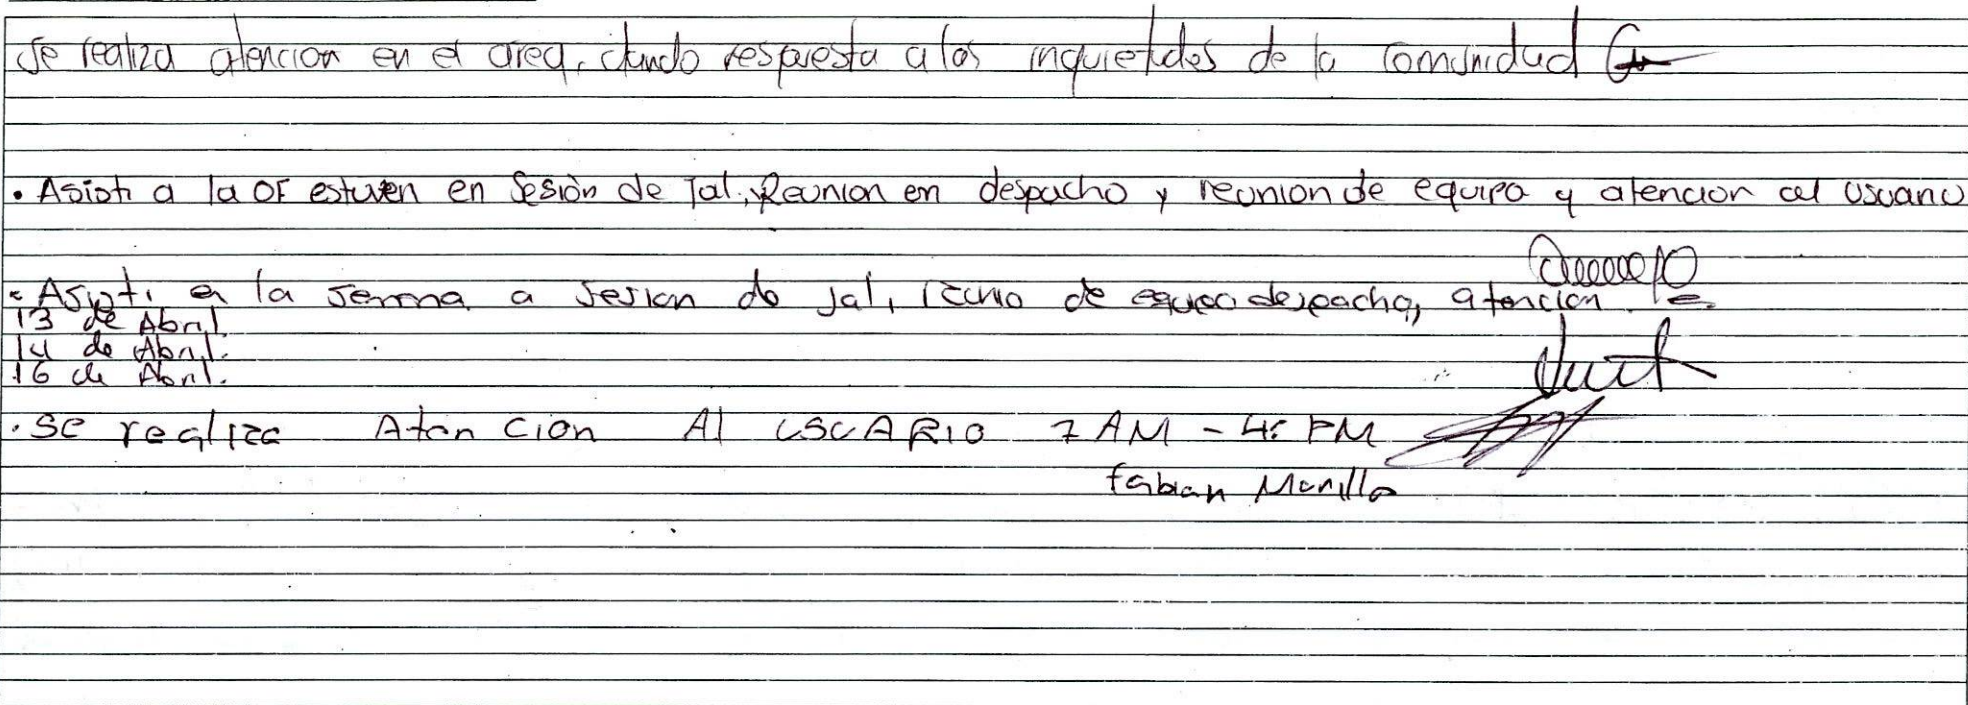 Se realiza atencion en el area, dando respuesta a las inquietudes de la comunidad
• Asisti a la OF estuven en Sesión de Jal, y Reunion en despacho y reunion de equipo y atencion al usuario
• Asisti en la semna a sesion de Jal, de despacho, atencion
13 de Abril.
14 de Abril.
16 de Abril.
• Se realiza Atencion Al USUARIO 7 AM - 4: PM
fabian